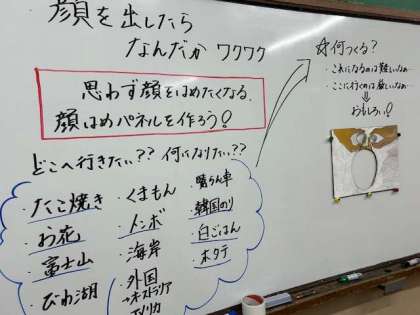 顔を出したら
なんだか ワクワク
思わず顔をはめたくなる、
顔はめパネルを作ろう!
どこへ行きたい?? 何になりたい??
・たこ焼き
・お花
・富士山
・びわ湖
・くまもん
・トンボ
・海岸
・外国
→オーストラリア
アメリカ
・晴らん車
・韓国のり
・白ごはん
・ホタテ
☆何つくる?
・これになるのは難しいなぁ…
・ここに行くのは厳しいなぁ…
⇓
おもしろい!